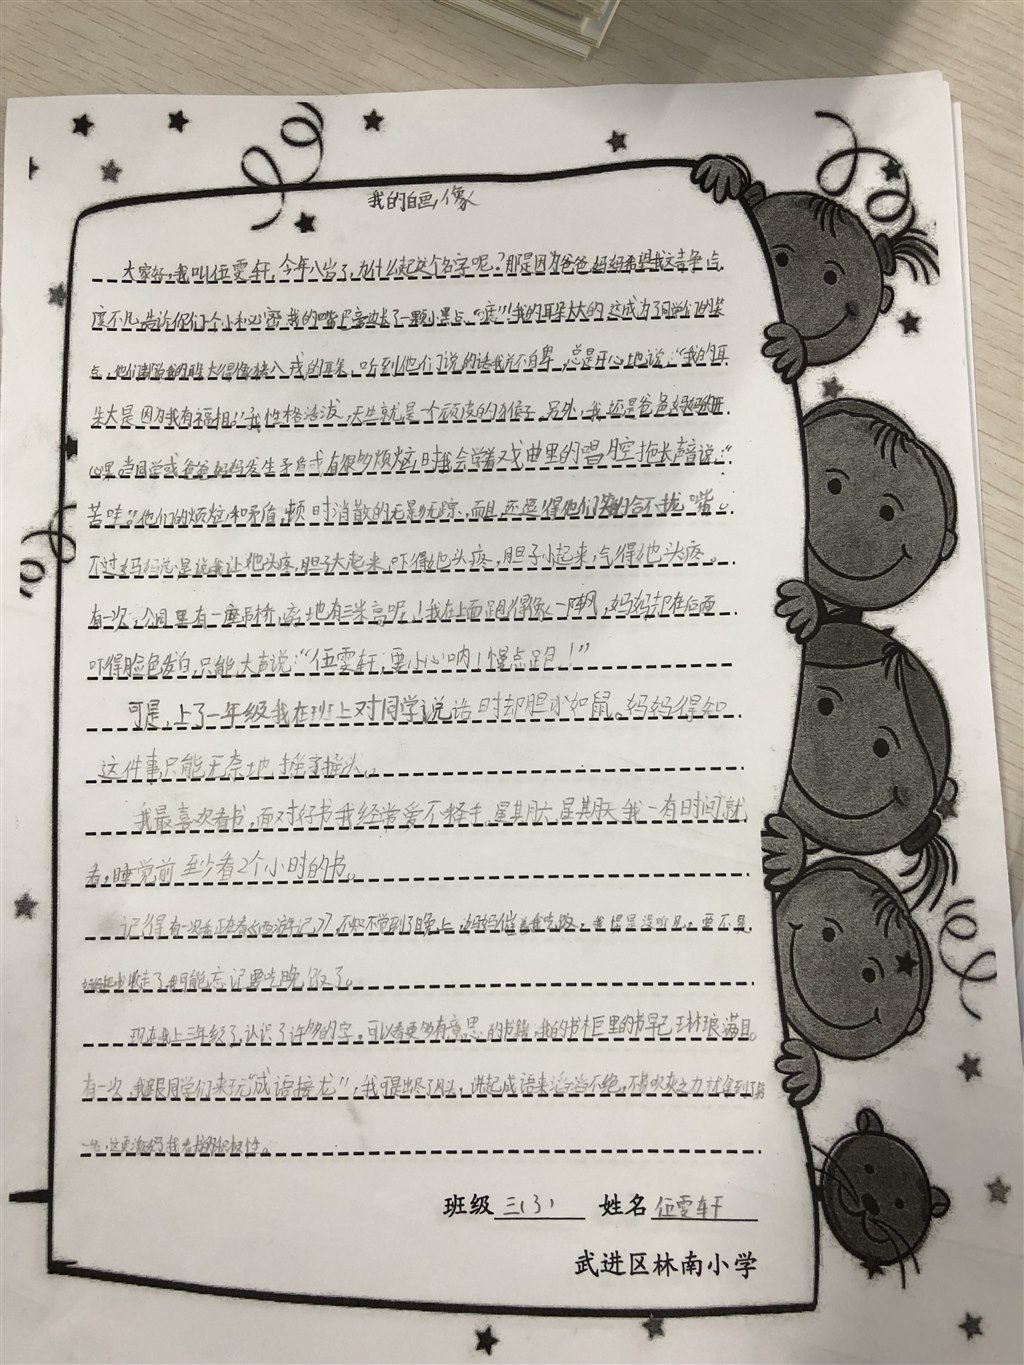 我的自画像
大家好，我叫伍雯轩，今年八岁了，为什么起这个名字呢？那是因为爸爸妈妈希望我文言争点
度不凡。告诉你们个小秘密，我的嘴巴旁边长了一颗小黑点，"痣"！我的耳朵大大的，这成为了同学们的笑
点，他们都学我的耳朵大得像，听到他们说的话我并不自卑，总是开心地说："我的耳
朵大是因为我有福相！"我性格活泼，天生就是一个顽皮的猴子，另外，我还是爸爸妈妈的开
心果，当同学或爸爸妈妈发生矛盾或有很多烦恼时，我会学着戏曲里的唱腔拖长声音说："
苦哇"他们的烦恼和矛盾，顿时消散的无影无踪，而且还逗得他们笑的合不拢嘴。
不过妈妈总是说我让她头疼，胆子大起来，吓得她头疼，胆子小起来，气得她头疼。
有一次，公园里有一座吊桥，离地有三米高呢！我在上面跑得像一阵风，妈妈却在后面
吓得脸色发白，只能大声说："伍雯轩，要小心呐！慢点跑！"
可是，上了一年级我在班上对同学说话时却胆小如鼠。妈妈得知
这件事只能无奈地摇了摇头。
我最喜欢看书，面对好书我经常爱不释手，星期六星期天我一有时间就
看，睡觉前至少看2个小时的书。
记得有一次我正在看《西游记》，不知不觉到了晚上，妈妈催着我吃饭，我愣是没听见，要不是
妈妈把书收走了，我可能忘记要吃晚饭了。
现在我上三年级了，认识了许多的字，可以看更多有意思的书籍，我的书柜里的书早已琳琅满目。
有一次，我跟同学们来玩"成语接龙"，我可是出尽了风头，讲起成语来滔滔不绝，不费吹灰之力就拿到了第
一名，这更激发了我看书的积极性。
班级 三(3) 姓名 伍雯轩
武进区林南小学